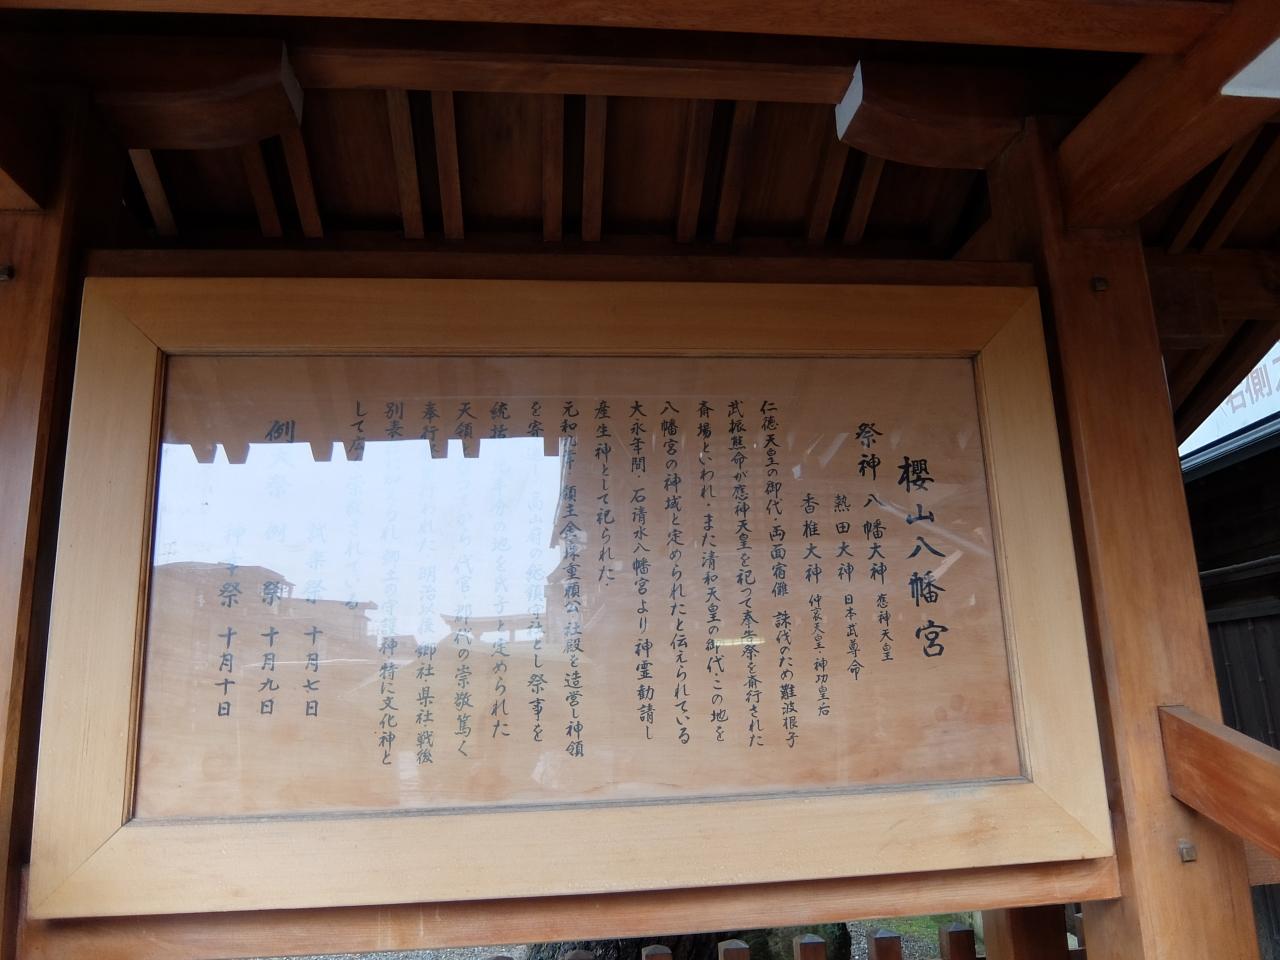 櫻山八幡宮
祭神 八幡大神 應神天皇
熱田大神 日本武尊命
香椎大神 仲哀天皇・神功皇后
仁徳天皇の御代・両面宿儺 誅伐のため難波根子
武振熊命が應神天皇を祀って奉告祭を斎行された
斎場といわれ・また清和天皇の御代・この地を
八幡宮の神域と定められたと伝えられている
大永年間・石清水八幡宮より神霊勧請し
産生神として祀られた・
元和九年・領主金森重頼公 社殿を造営し神領
を寄 高山府の総鎮守社とし祭事を
統括 分の地を氏子と定められた
天領 から代官・郡代の崇敬篤く
奉行 行われた 明治以後 郷社 県社・戦後
別表 られ 郷土の守護神特に文化神と
して広 崇敬されている
例 祭
試楽祭 十月七日
例 祭 十月九日
神幸祭 十月十日
右側